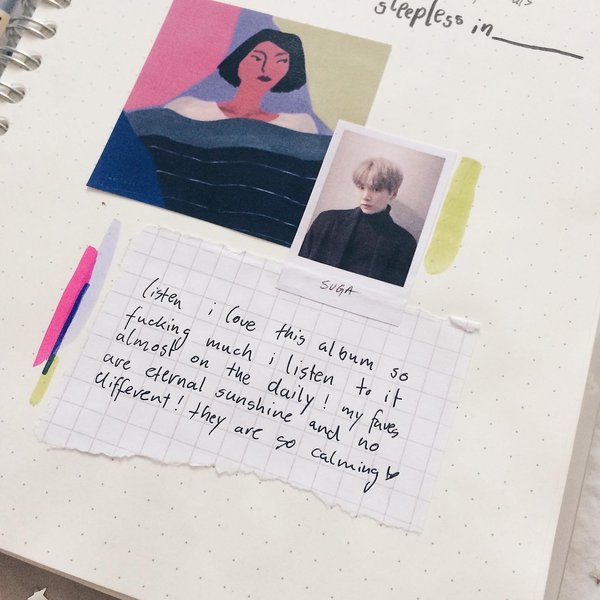 sleepless in
SUGA
listen i love this album so
fucking much i listen to it
almost on the daily! my faves
are eternal sunshine and no
different! they are so calming